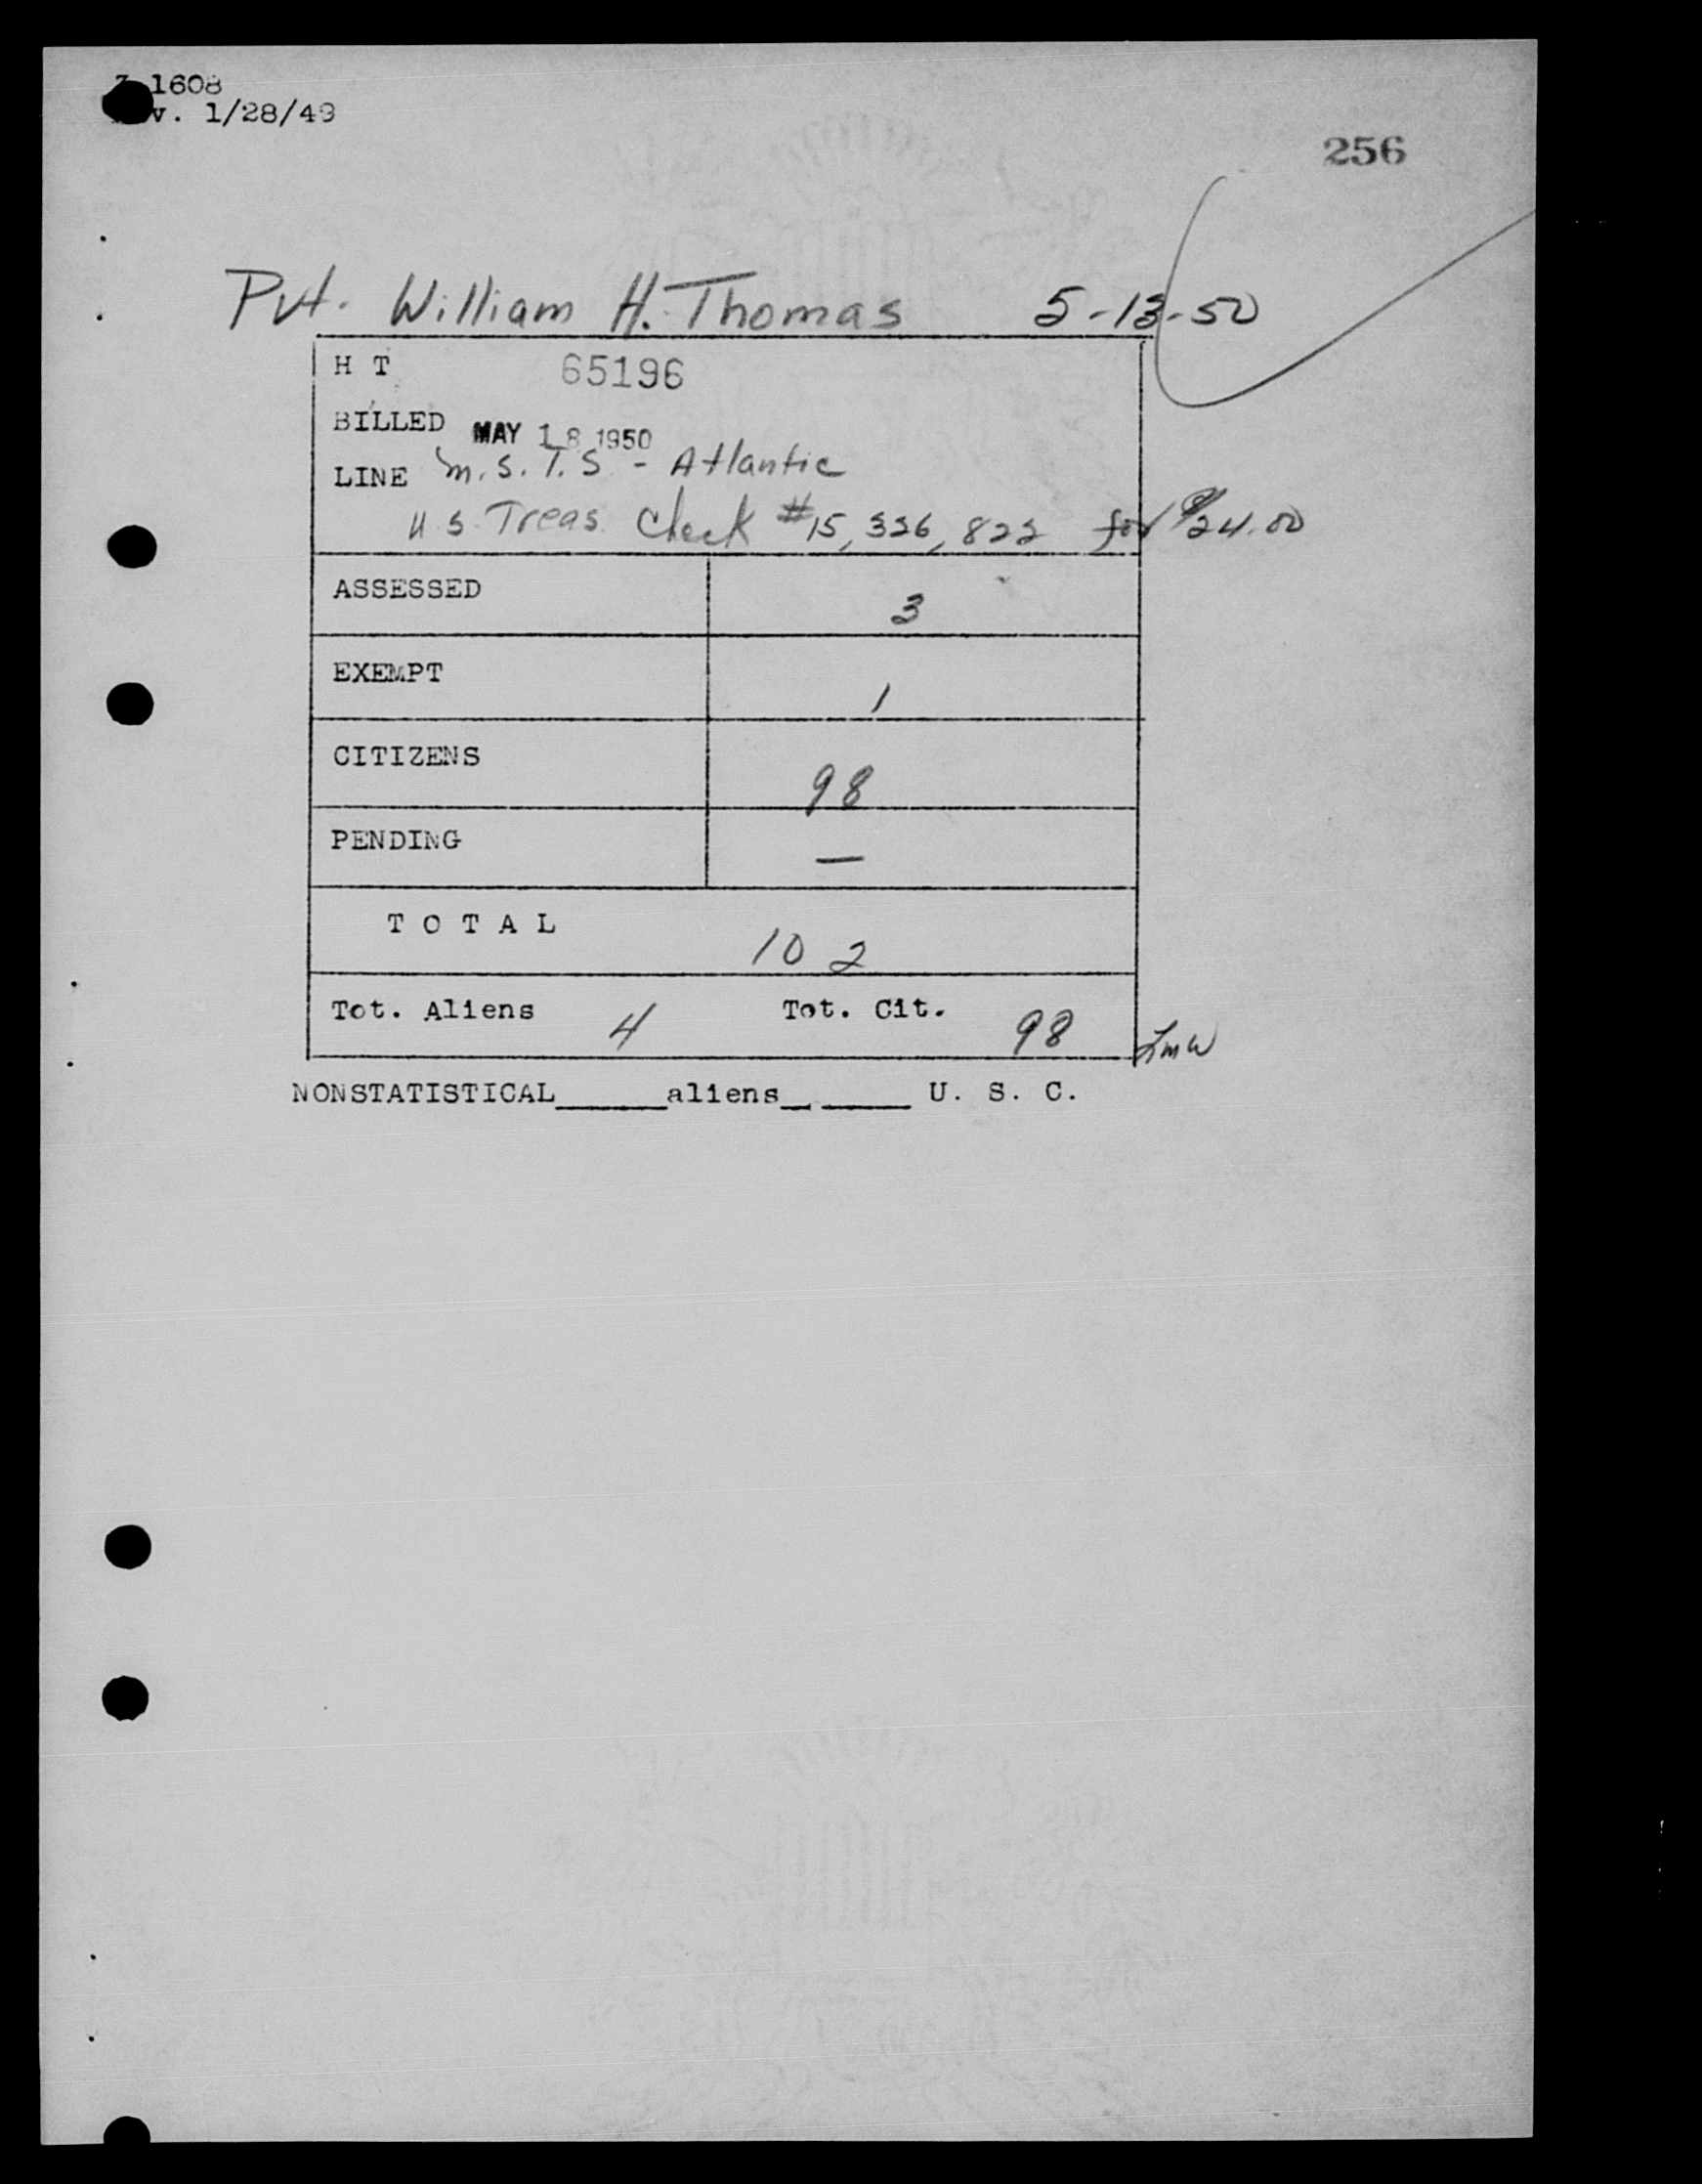 1608
v. 1/28/49
256
Pvt. William H. Thomas 5-13-50
H T 65196
BILLED MAY 18 1950
LINE M.S.T.S - Atlantic
U S Treas. Check #15,326,822 for $24.00
ASSESSED 3
EXEMPT 1
CITIZENS 98
PENDING —
T O T A L 102
Tot. Aliens 4 Tot. Cit. 98 LMW
NONSTATISTICAL______aliens__ _____ U. S. C.